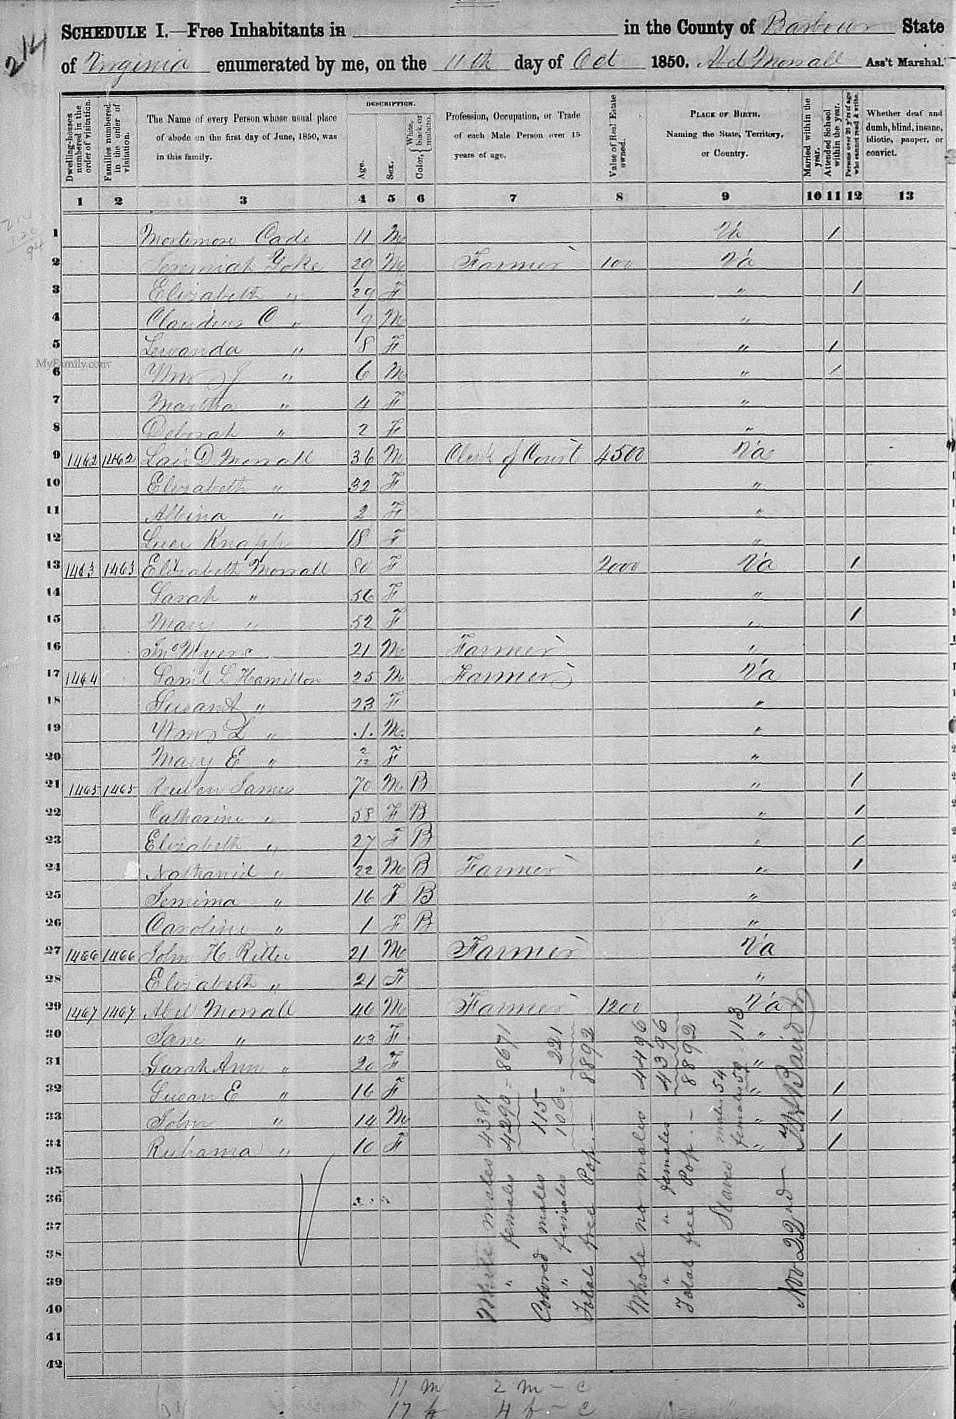 214
SCHEDULE I.—Free Inhabitants in in the County of Barbour State
of Virginia enumerated by me, on the 11th day of Oct 1850. Abel Morrall Ass't Marshal.
Dwelling-houses numbered in the order of visitation.
Families numbered in the order of visitation.
The Name of every Person whose usual place of abode on the first day of June, 1850, was in this family.
DESCRIPTION.
Age.
Sex.
Color, White, black, or mulatto.
Profession, Occupation, or Trade of each Male Person over 15 years of age.
Value of Real Estate owned.
PLACE OF BIRTH. Naming the State, Territory, or Country.
Married within the year.
Attended School within the year.
Persons over 20 y'rs of age who cannot read & write.
Whether deaf and dumb, blind, insane, idiotic, pauper, or convict.
1 2 3 4 5 6 7 8 9 10 11 12 13
1 Mortimore Cade 11 M Va 1
2 Jeremiah Yoke 29 M Farmer 100 Va
3 Elizabeth " 29 F " 1
4 Claudius C " 9 M "
5 " 8 F " 1
6 Wm J " 6 M " 1
7 Martha " 4 F "
8 Deborah " 2 F "
9 1462 1462 D Morrall 36 M Clerk of Court 4500 Va
10 Elizabeth " 32 F "
11 Albina " 2 F "
12 Knapp 18 F "
13 1463 1463 Elizabeth Morrall 80 F 2000 Va 1
14 Sarah " 56 F "
15 Mary " 52 F " 1
16 Jno Myers 21 M Farmer "
17 1464 Sam'l L Hamilton 25 M Farmer Va
18 Susan A " 23 F "
19 Wm L " 1 M "
20 Mary E " 2/12 F "
21 1465 1465 Reuben James 70 M B " 1
22 Catharine " 58 F B " 1
23 Elizabeth " 27 F B " 1
24 Nathaniel " 22 M B Farmer " 1
25 Jemima " 16 F B "
26 Caroline " 1 F B "
27 1466 1466 John H. Ritter 21 M Farmer Va
28 Elizabeth " 21 F "
29 1467 1467 Abel Morrall 46 M Farmer 1200 Va
30 Jane " 43 F "
31 Sarah Ann " 20 F "
32 Susan E " 16 F " 1
33 John " 14 M " 1
34 Ruhama " 10 F " 1
35
36
37
38
39
40
41
42
White males 4381
" females 4290 - 8671
Colored males 115
" females 106 221
Total free Pop. - 8892
Whole no males 4496
" " females 4396
Total free Pop. - 8892
Slaves males 54
females 59 113
Nov 22nd
MyFamily.com
11 m 2 m - c
17 f 4 f - c